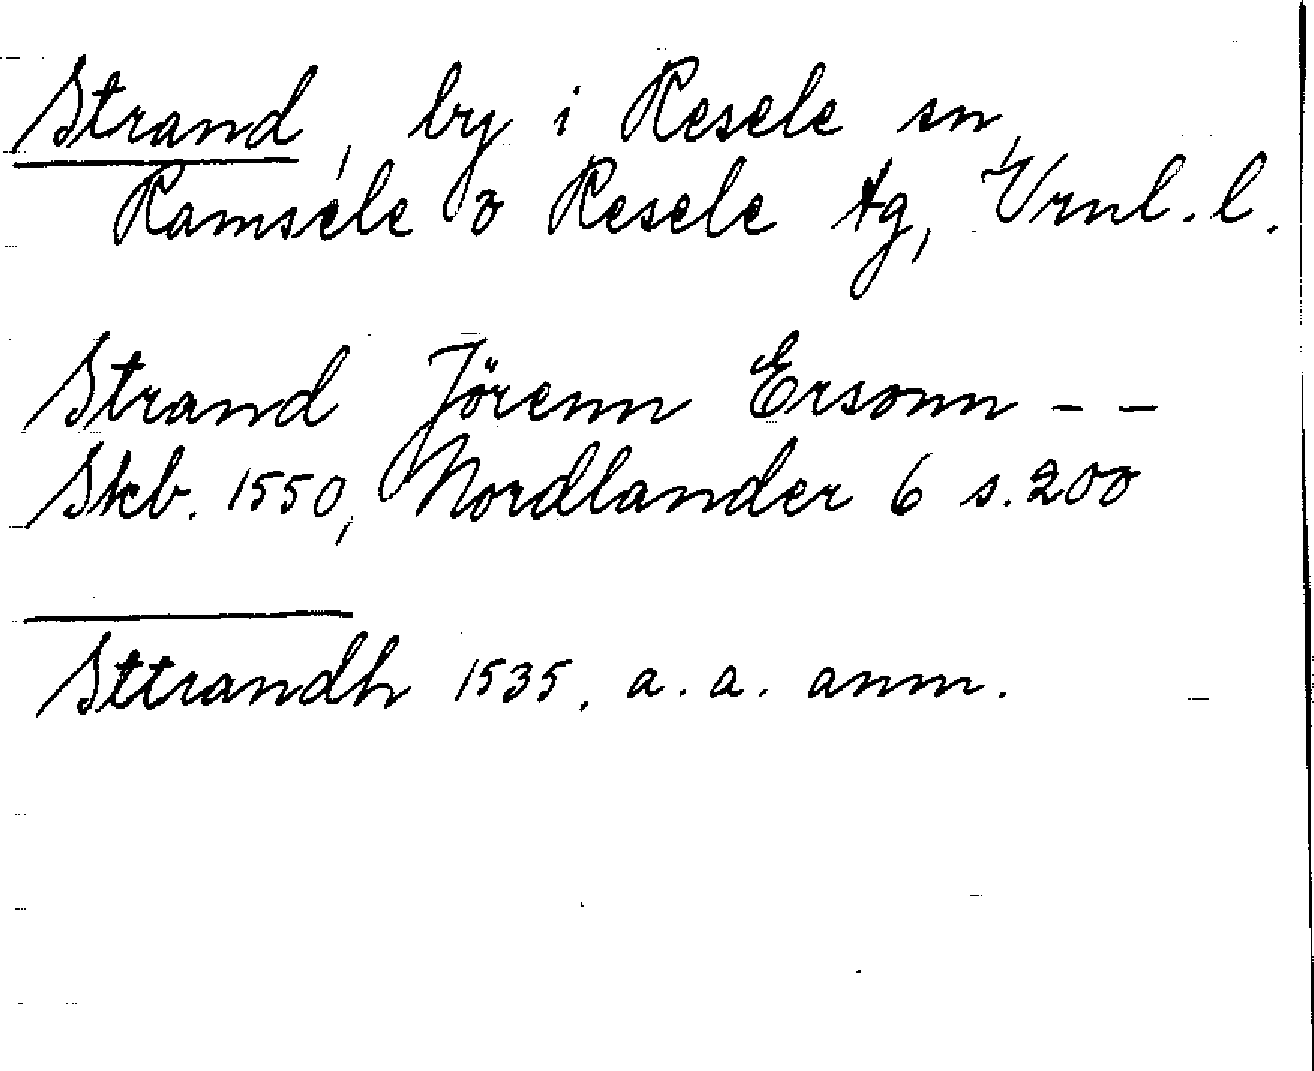 Strand, by i Resele sn,
Ramsele o Resele tg, Vrnl. l.
Strand Jörenn Ersonn - -
Skb. 1550, Nordlander 6 s. 200
Sttrandh 1535, a. a. anm.